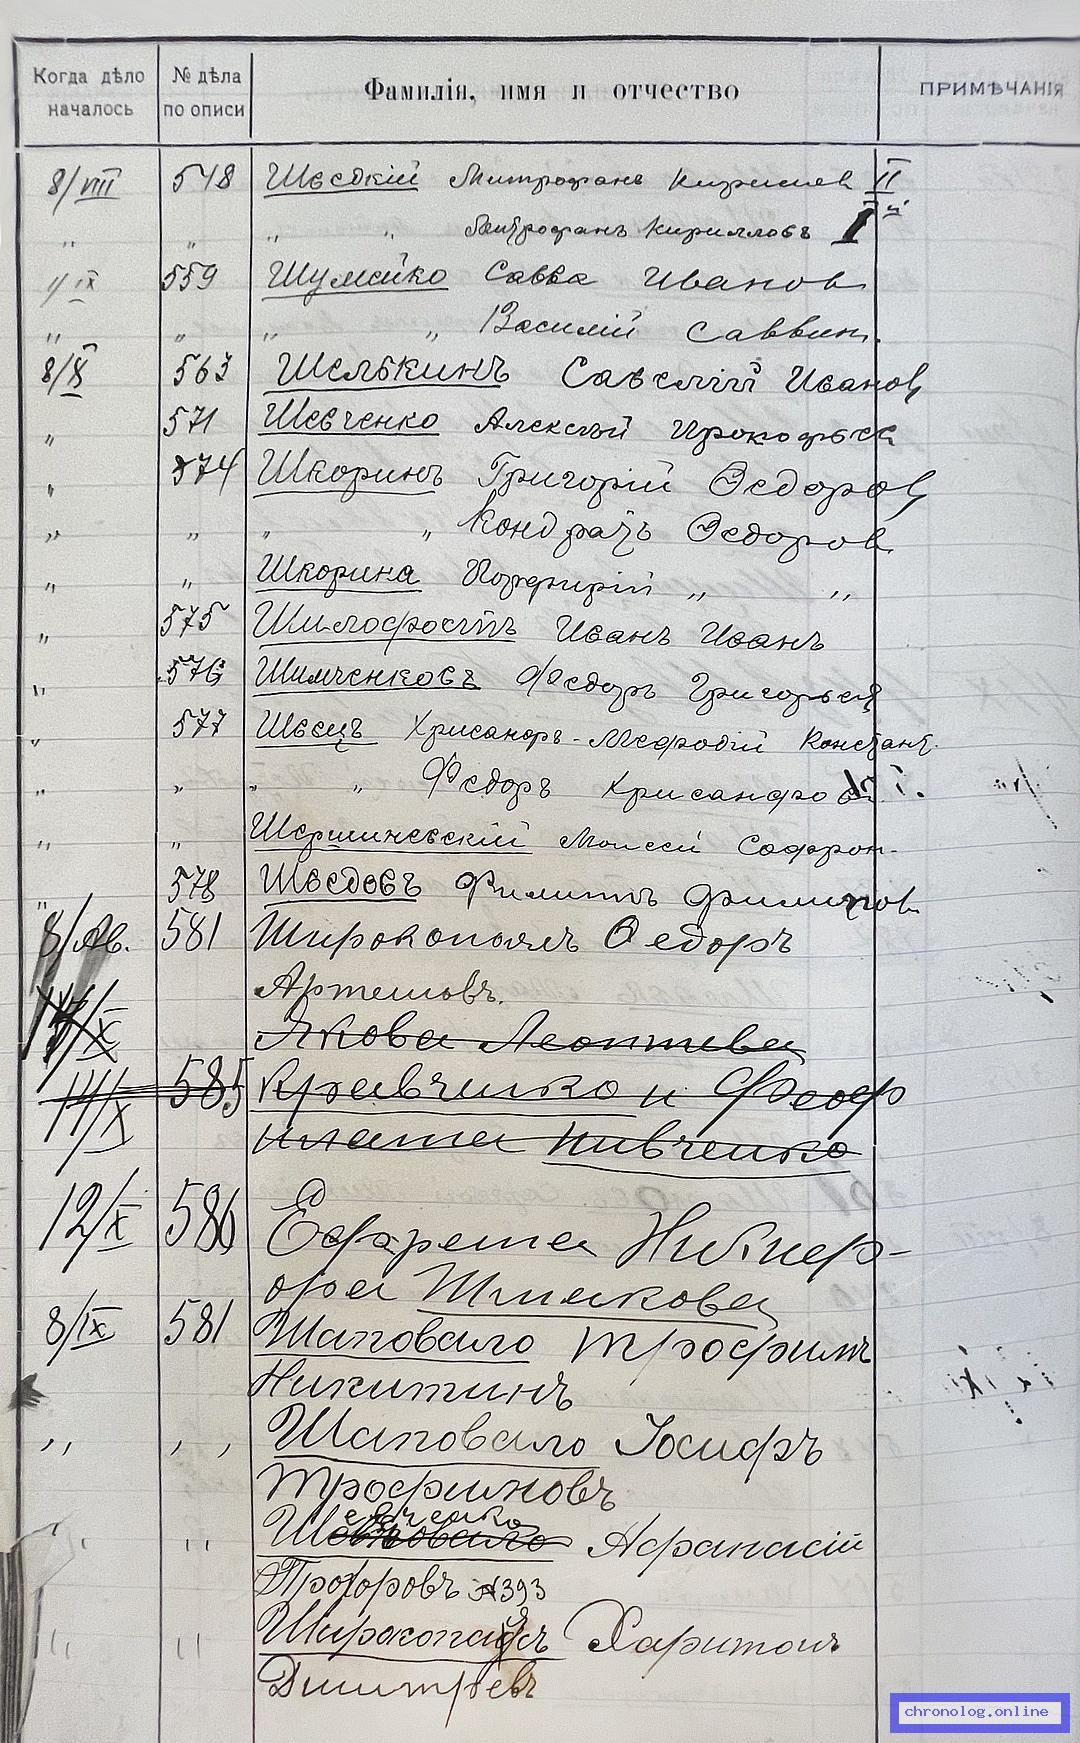 Когда дѣло началось № дѣла по описи Фамилія, имя и отчество ПРИМѢЧАНІЯ
8/VIII 548 Шведкій Митрофанъ Кирилев II
" " " " Митрофанъ Кирилловъ I й
1/IX 559 Шумейко Савва Иванов
" " " " Василій Саввин.
8/X 563 Шелькинъ Савелій Иванов
" 571 Шевченко Алексѣй Прокофьев
" 574 Шкоринъ Григорій Ѳедоров
" " " " Кондратъ Ѳедоров
" " Шкорина Порфирій " "
" 575 Шилофостъ Иванъ Иванъ
" 576 Шимченковъ Федоръ Григорьев
" 577 Швецъ Хрисанфъ-Мефодій Констант.
" " " " Федоръ Хрисанфов
" " Шершневскій Моисей Софрон-
" 578 Шведовъ Филиппъ Филипов
8/Ав. 581 Широкопоясъ Ѳедоръ
Артемовъ.
11/X Якова Леонтьева
11/X 585 Кравченко и Феофи
лакта Кивченко
12/X 586 Ефрема Никиф-
ора Шмакова
8/IX 581 Шаповало Трофимъ
Никитинъ
" " Шаповало Іосифъ
Трофимовъ
евченко
" " Шаповало Афанасій
Прохоровъ №393
" " Широкопоясъ Харитонъ
Дмитревъ
chronolog.online